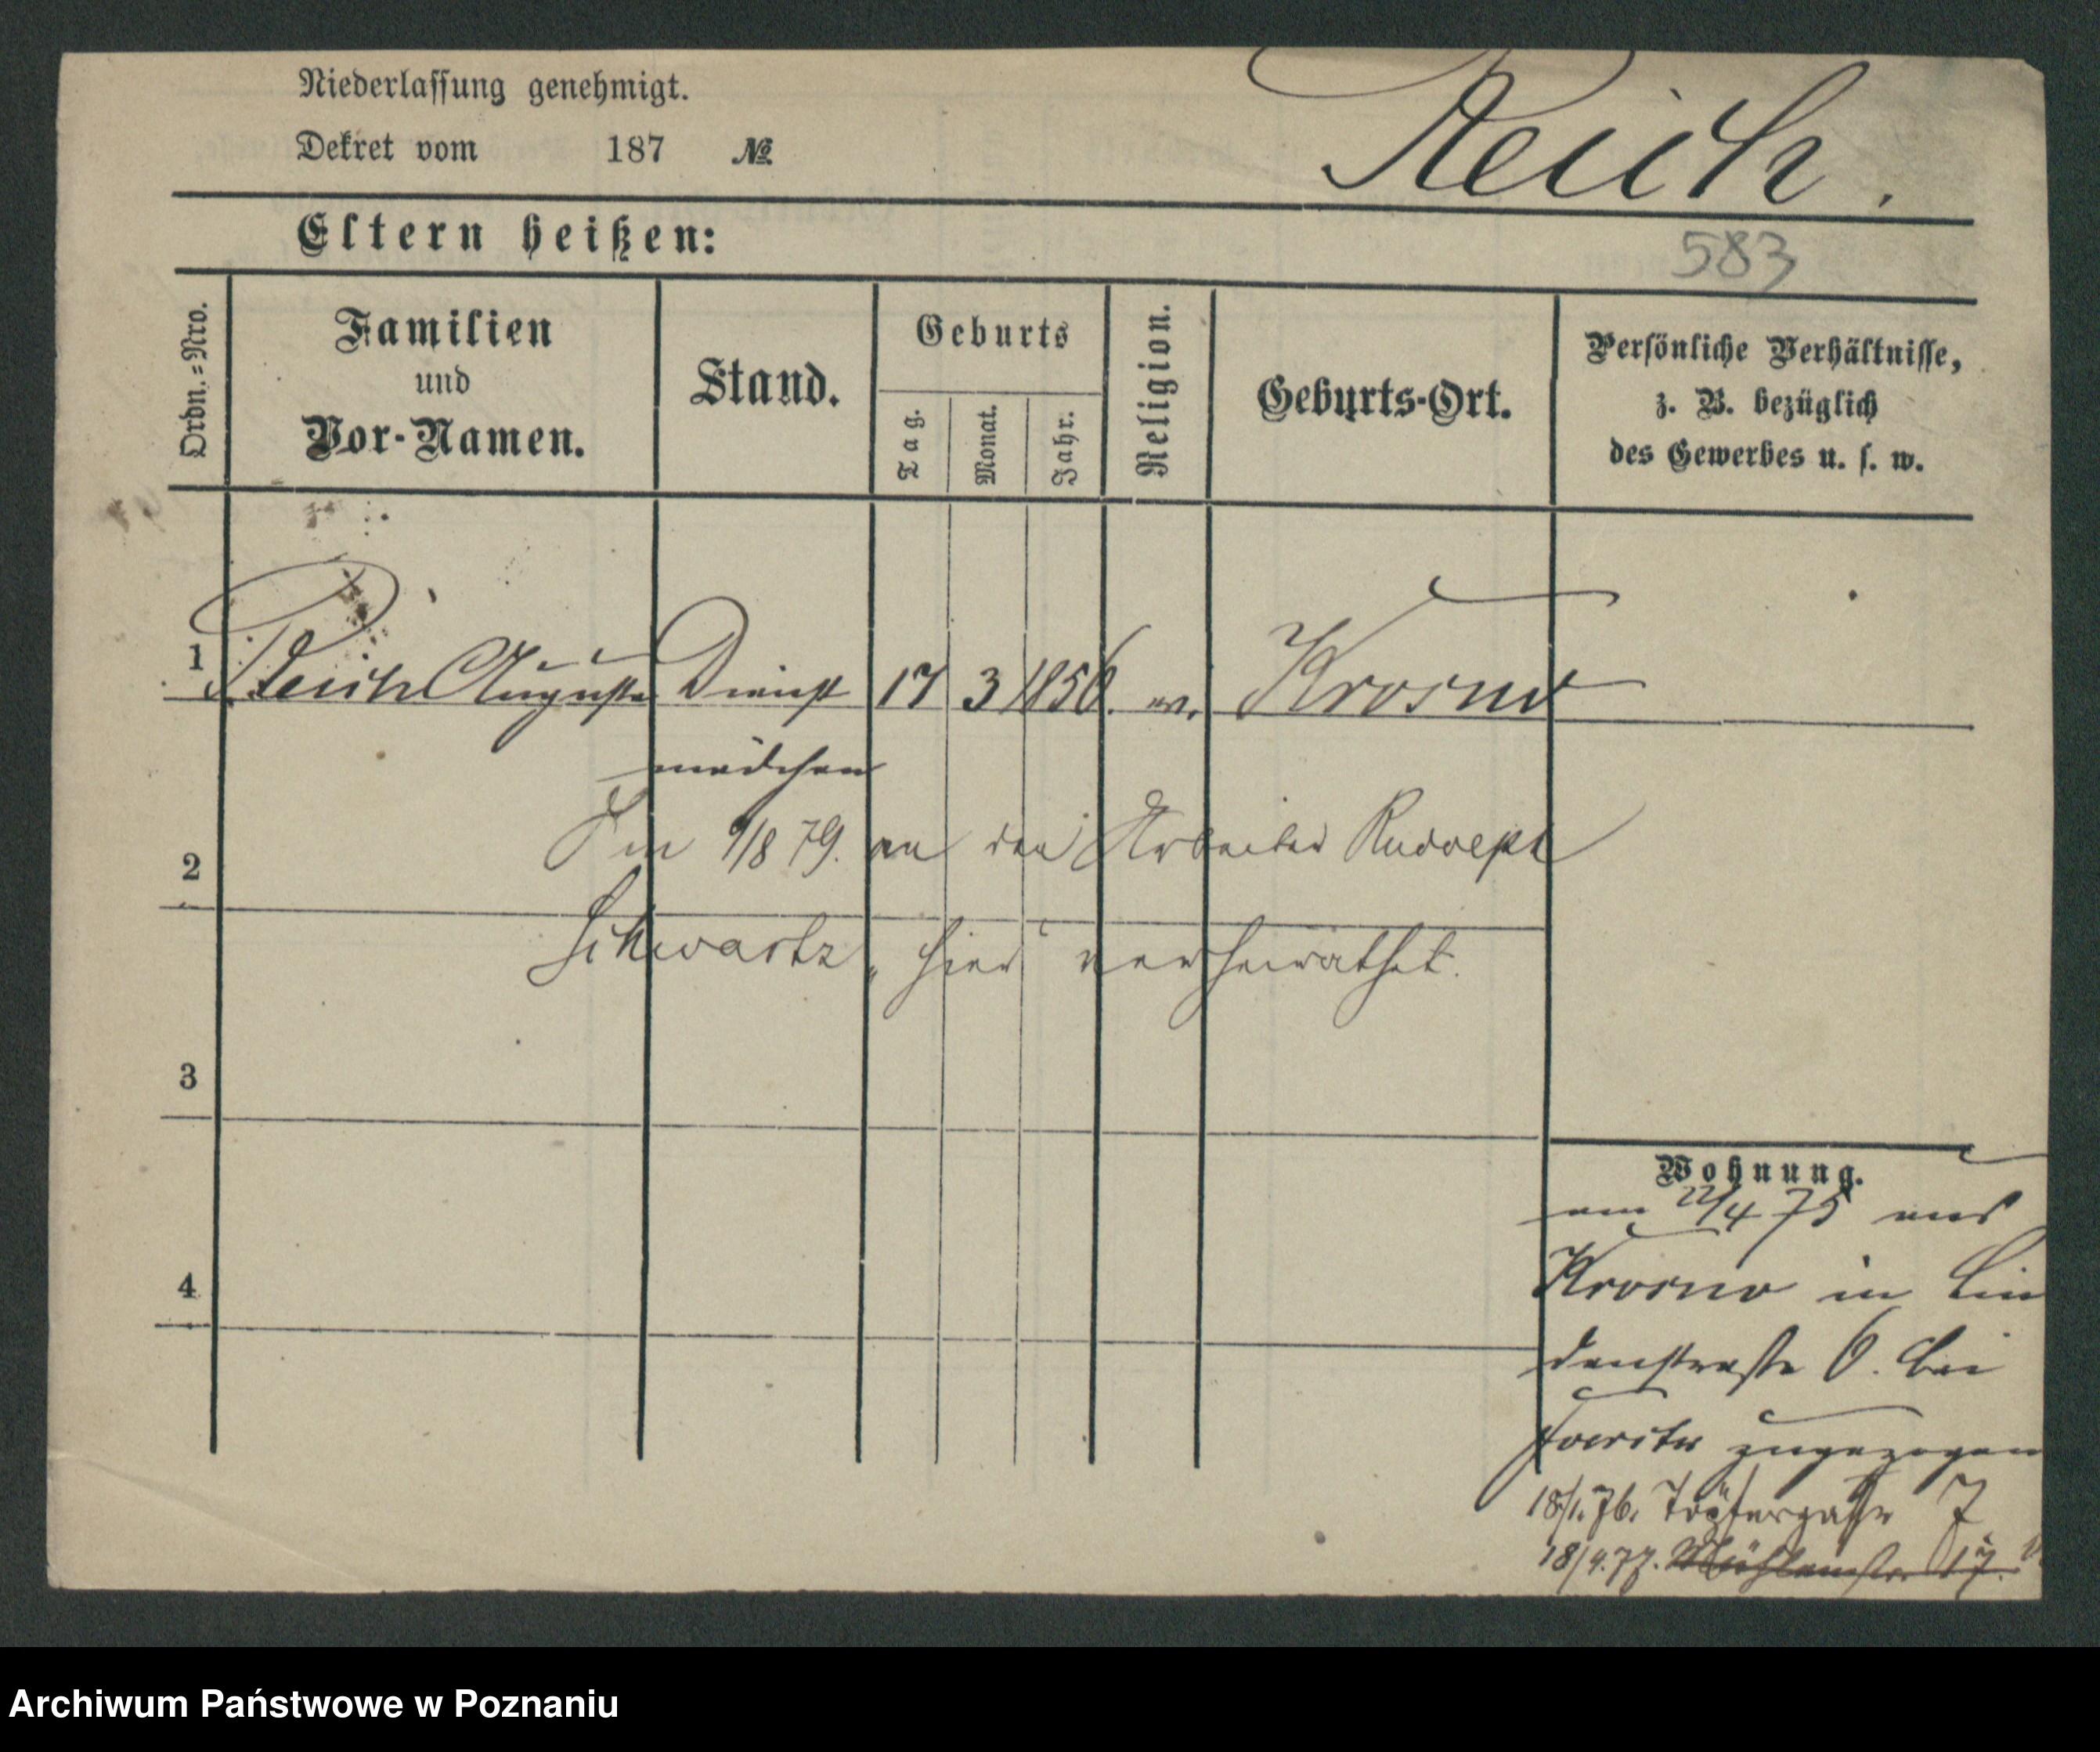 Niederlassung genehmigt.
Dekret vom 187 №
Reich.
Eltern heißen:
583
Ordn.-Nro.
Familien
und
Vor-Namen.
Stand.
Geburts
Tag.
Monat.
Jahr.
Religion.
Geburts-Ort.
Persönliche Verhältnisse,
z. B. bezüglich
des Gewerbes u. s. w.
1 Reich Auguste Dienst 17 3 1856. ev. Krosno
mädchen
2 Im 9/8 79. an den Arbeiter Rudolph
Schwartz, hier verheirathet.
3
4
Wohnung.
am 22/4 75 aus
Krosno in Lin
denstraße 6. bei
zugezogen
18/1.76. Töpfergasse 7
18/4.77. Mühlenstr. 17.
Archiwum Państwowe w Poznaniu